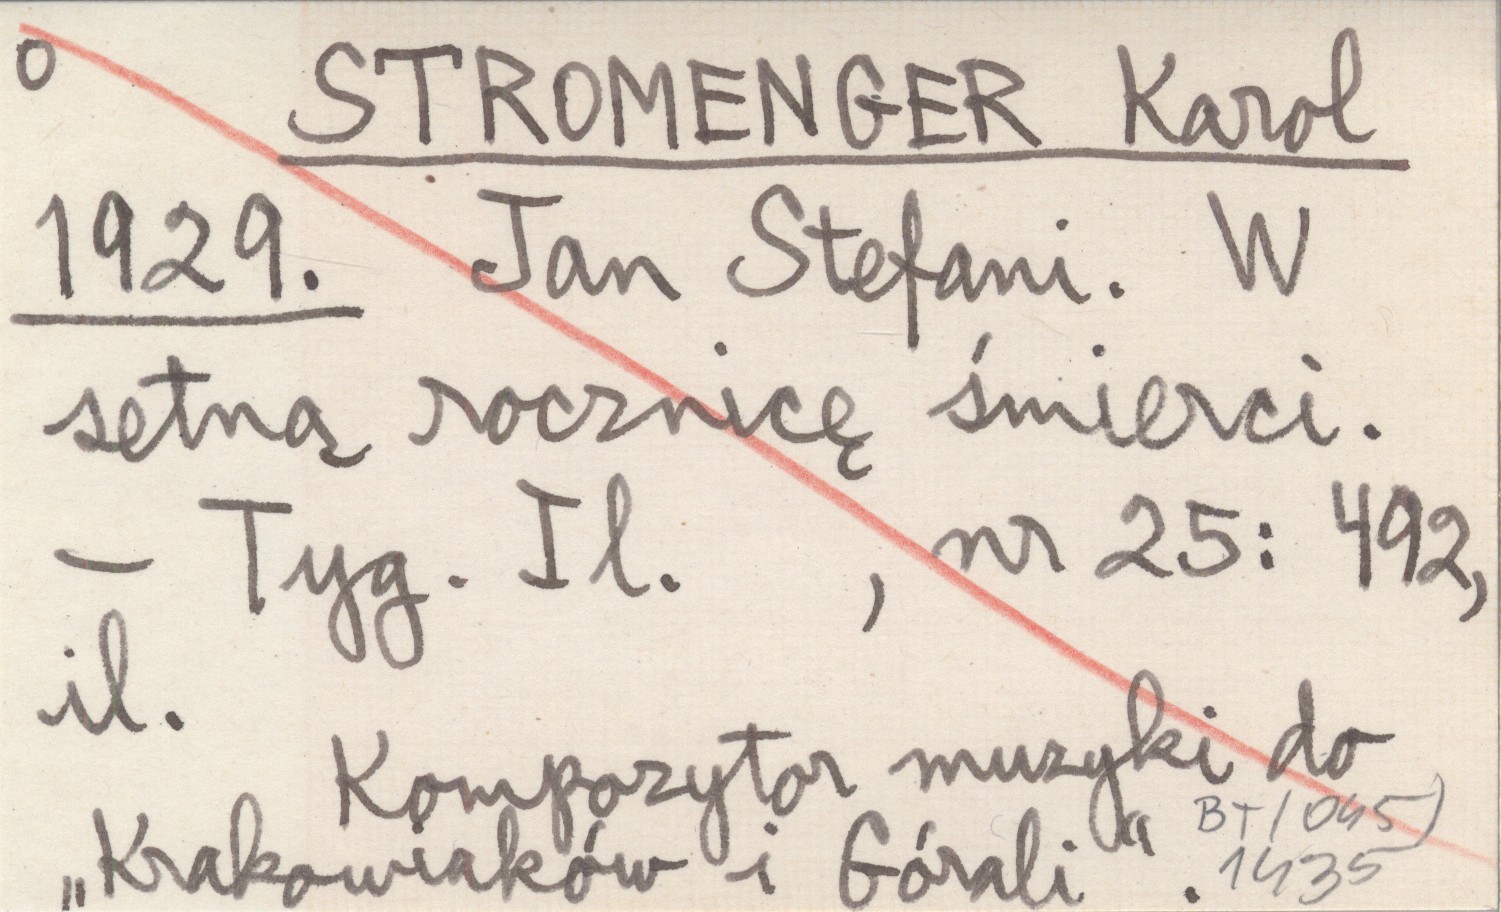 o STROMENGER Karol
1929. Jan Stefani. W
setną rocznicę śmierci.
— Tyg. Il. , nr 25: 492,
il.
Kompozytor muzyki do
„Krakowiaków i Górali“.
BT/045)
1435